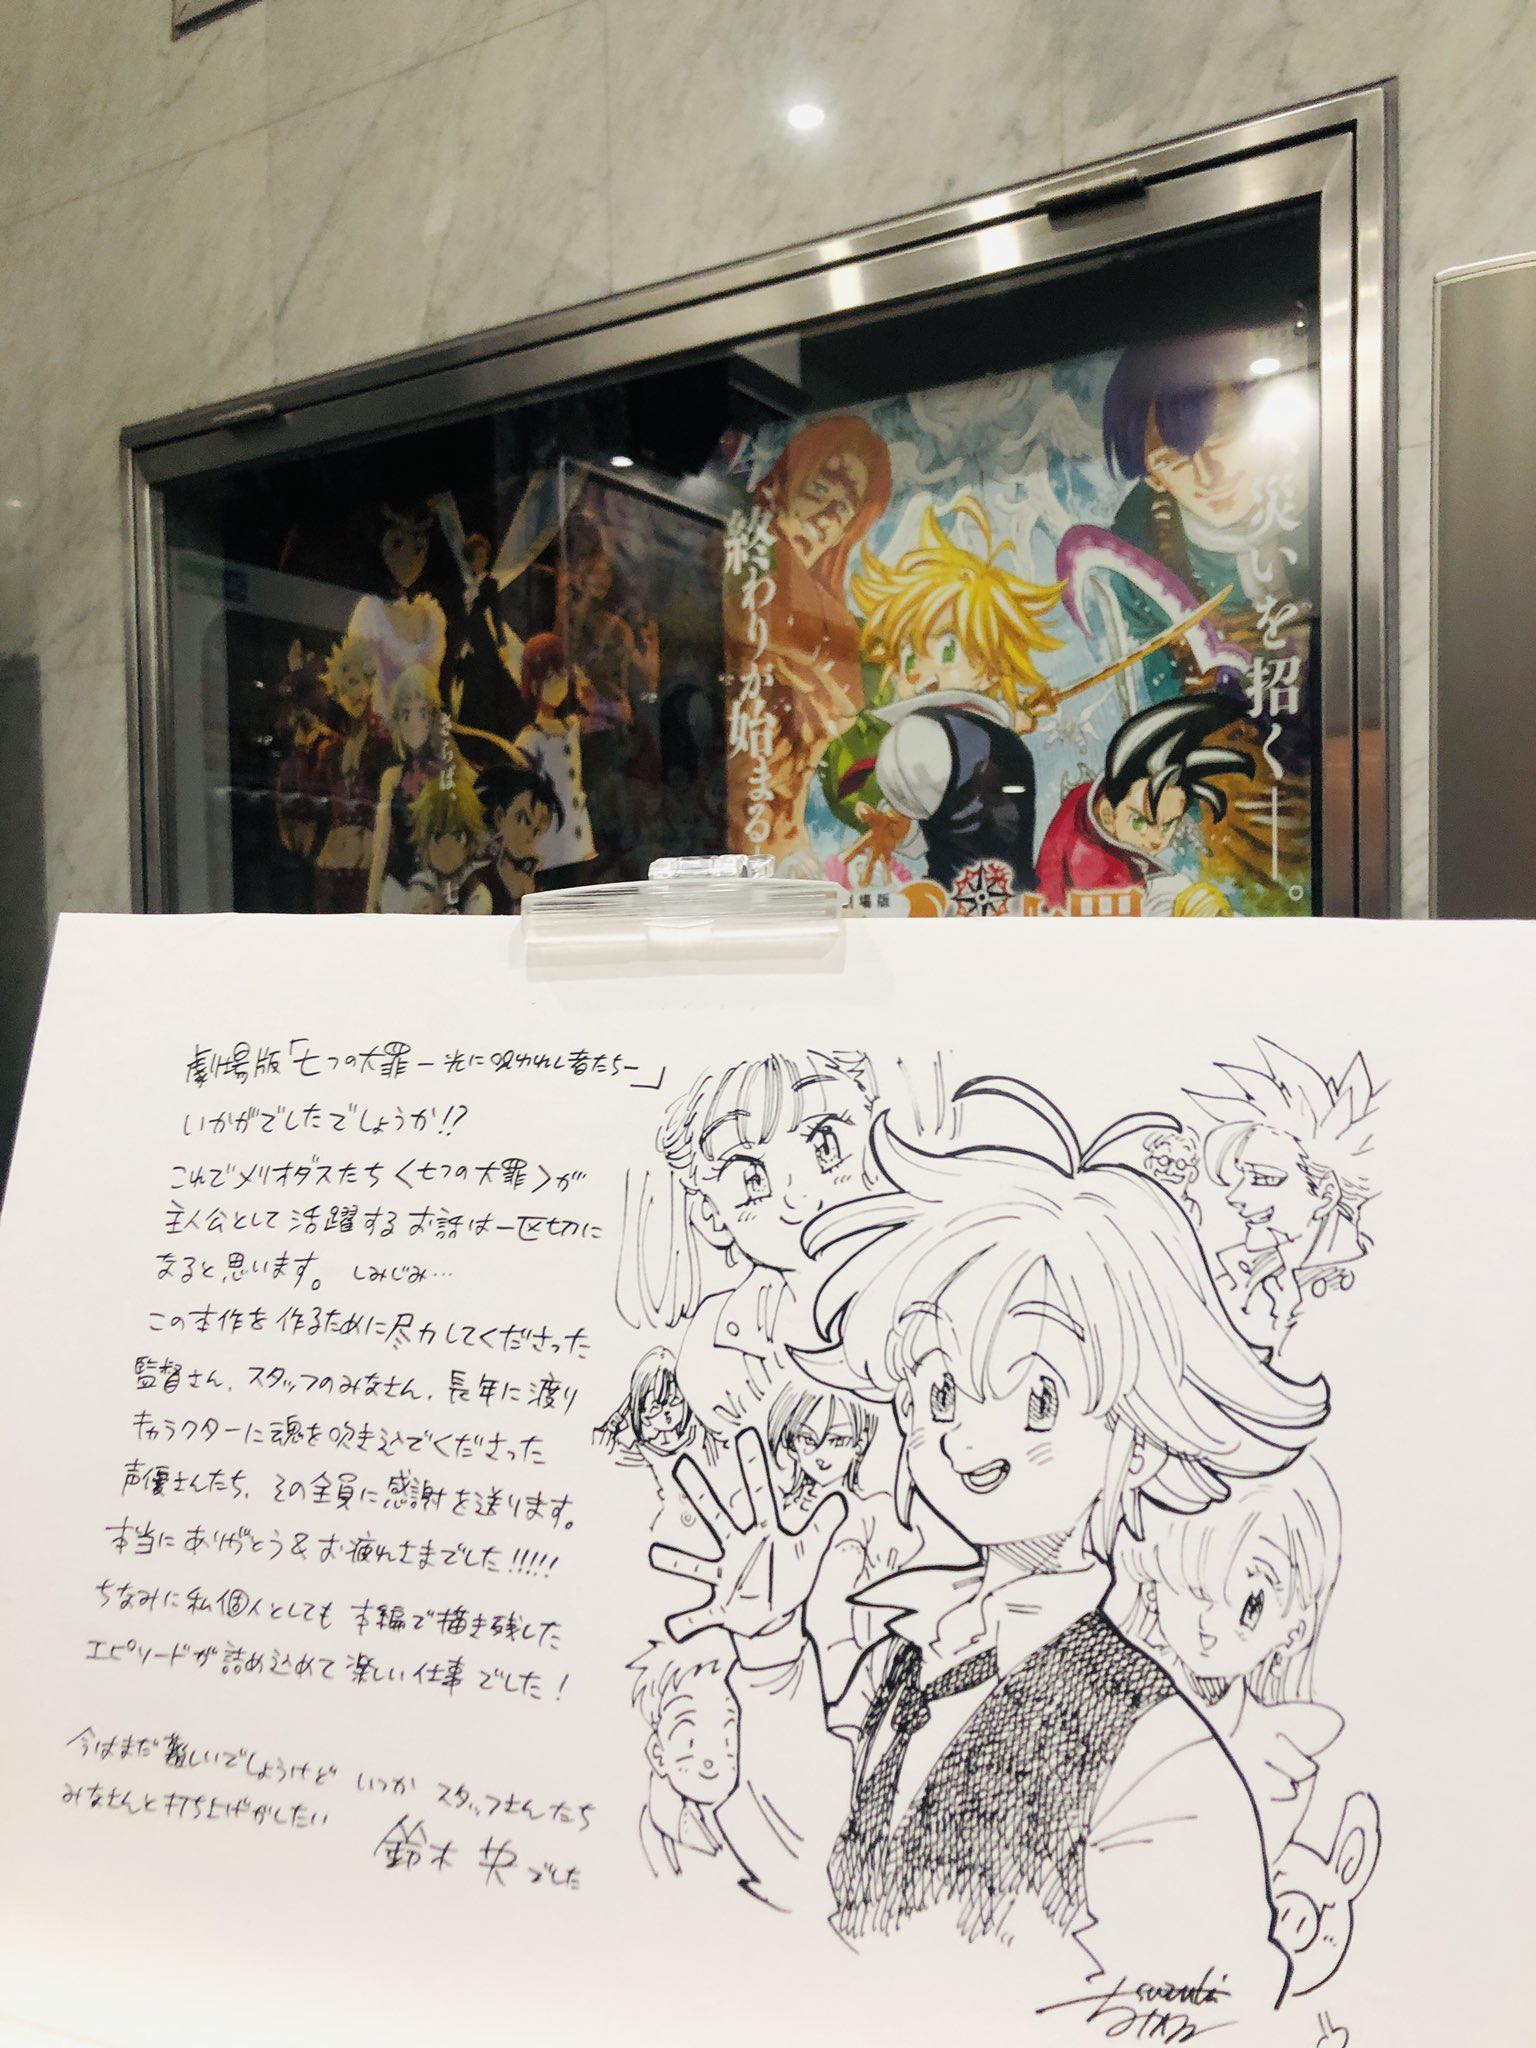 災いを招く―。
終わりが始まる
さらば、
七つ
劇場版
劇場版「七つの大罪ー光に呪われし者たちー」
いかがでしたでしょうか!?
これでメリオダスたち〈七つの大罪〉が
主人公として活躍するお話は一区切りに
なると思います。しみじみ…
この本作を作るために尽力してくださった
監督さん、スタッフのみなさん、長年に渡り
キャラクターに魂を吹き込んでくださった
声優さんたち、その全員に感謝を送ります。
本当にありがとう&お疲れさまでした!!!!!
ちなみに私個人としても本編で描き残した
エピソードが詰め込めて楽しい仕事でした!
今はまだ難しいでしょうけど いつか スタッフさんたち
みなさんと打ち上げがしたい
鈴木 央 でした
suzuki